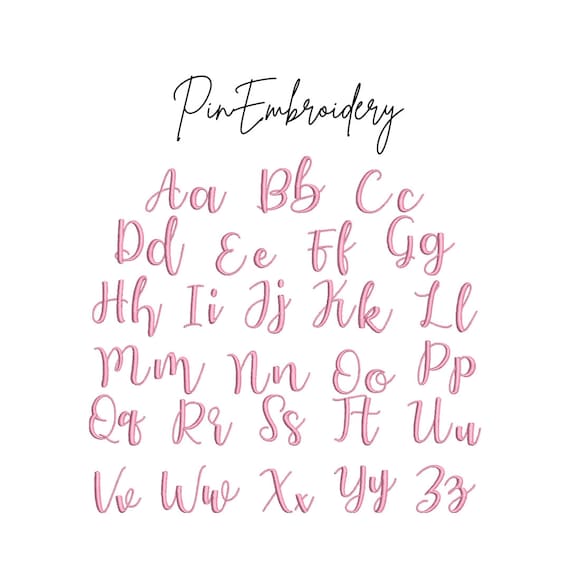 PinEmbroidery
Aa Bb Cc
Dd Ee Ff Gg
Hh Ii Jj Kk Ll
Mm Nn Oo Pp
Qq Rr Ss Tt Uu
Vv Ww Xx Yy Zz